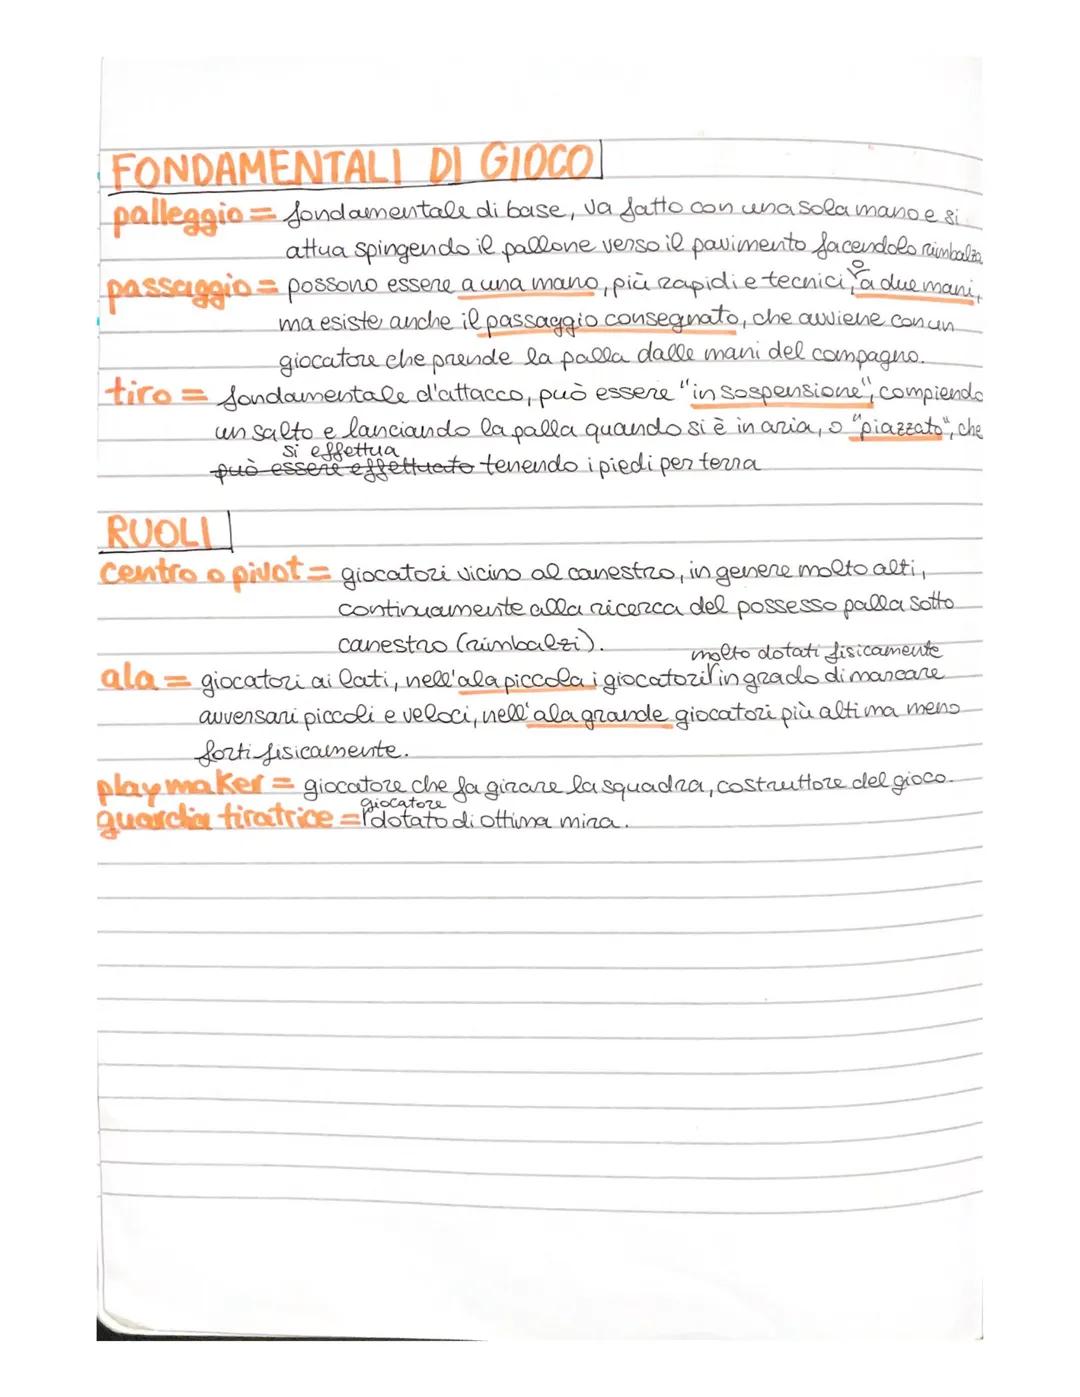 FONDAMENTALI DI GIOCO
palleggio = fondamentale di base, va fatto con una sola mano e si
attua spingendo il pallone verso il pavimento facendolo rimbalza
passaggio = possono essere a una mano, più rapidi e tecnici, o a due mani,
ma esiste anche il passaggio consegnato, che avviene con un
giocatore che prende la palla dalle mani del compagno.
tiro = fondamentale d'attacco, può essere "in sospensione", compiendo
un salto e lanciando la palla quando si è in aria, o "piazzato", che
si effettua
può essere effettuato tenendo i piedi per terra
RUOLI
centro o pivot = giocatori vicino al canestro, in genere molto alti,
continuamente alla ricerca del possesso palla sotto
canestro (rimbalzi).
molto dotati fisicamente
ala = giocatori ai lati, nell'ala piccola i giocatori in grado di marcare
avversari piccoli e veloci, nell'ala grande giocatori più alti ma meno
forti fisicamente.
playmaker = giocatore che fa girare la squadra, costruttore del gioco.
giocatore
guardia tiratrice = dotato di ottima mira.